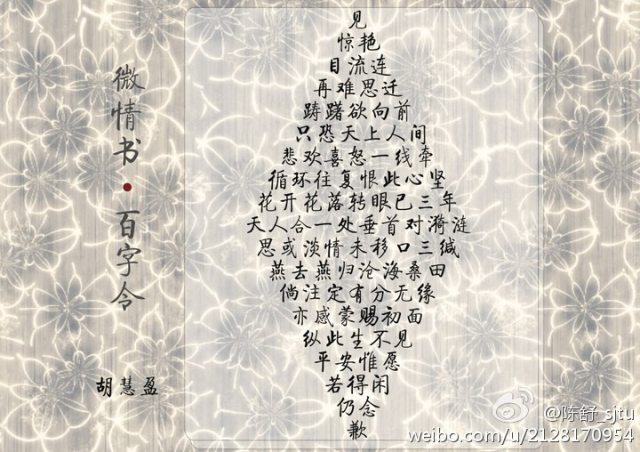 微情书·百字令
胡慧盈
见
惊艳
目流连
再难思迁
踌躇欲向前
只恐天上人间
悲欢喜怒一线牵
循环往复恨此心坚
花开花落转眼已三年
天人合一处垂首对漪涟
思或淡情未移口三缄
燕去燕归沧海桑田
倘注定有分无缘
亦感蒙赐初面
纵此生不见
平安惟愿
若得闲
仍念
歉
@陈舒_sjtu
weibo.com/u/2128170954